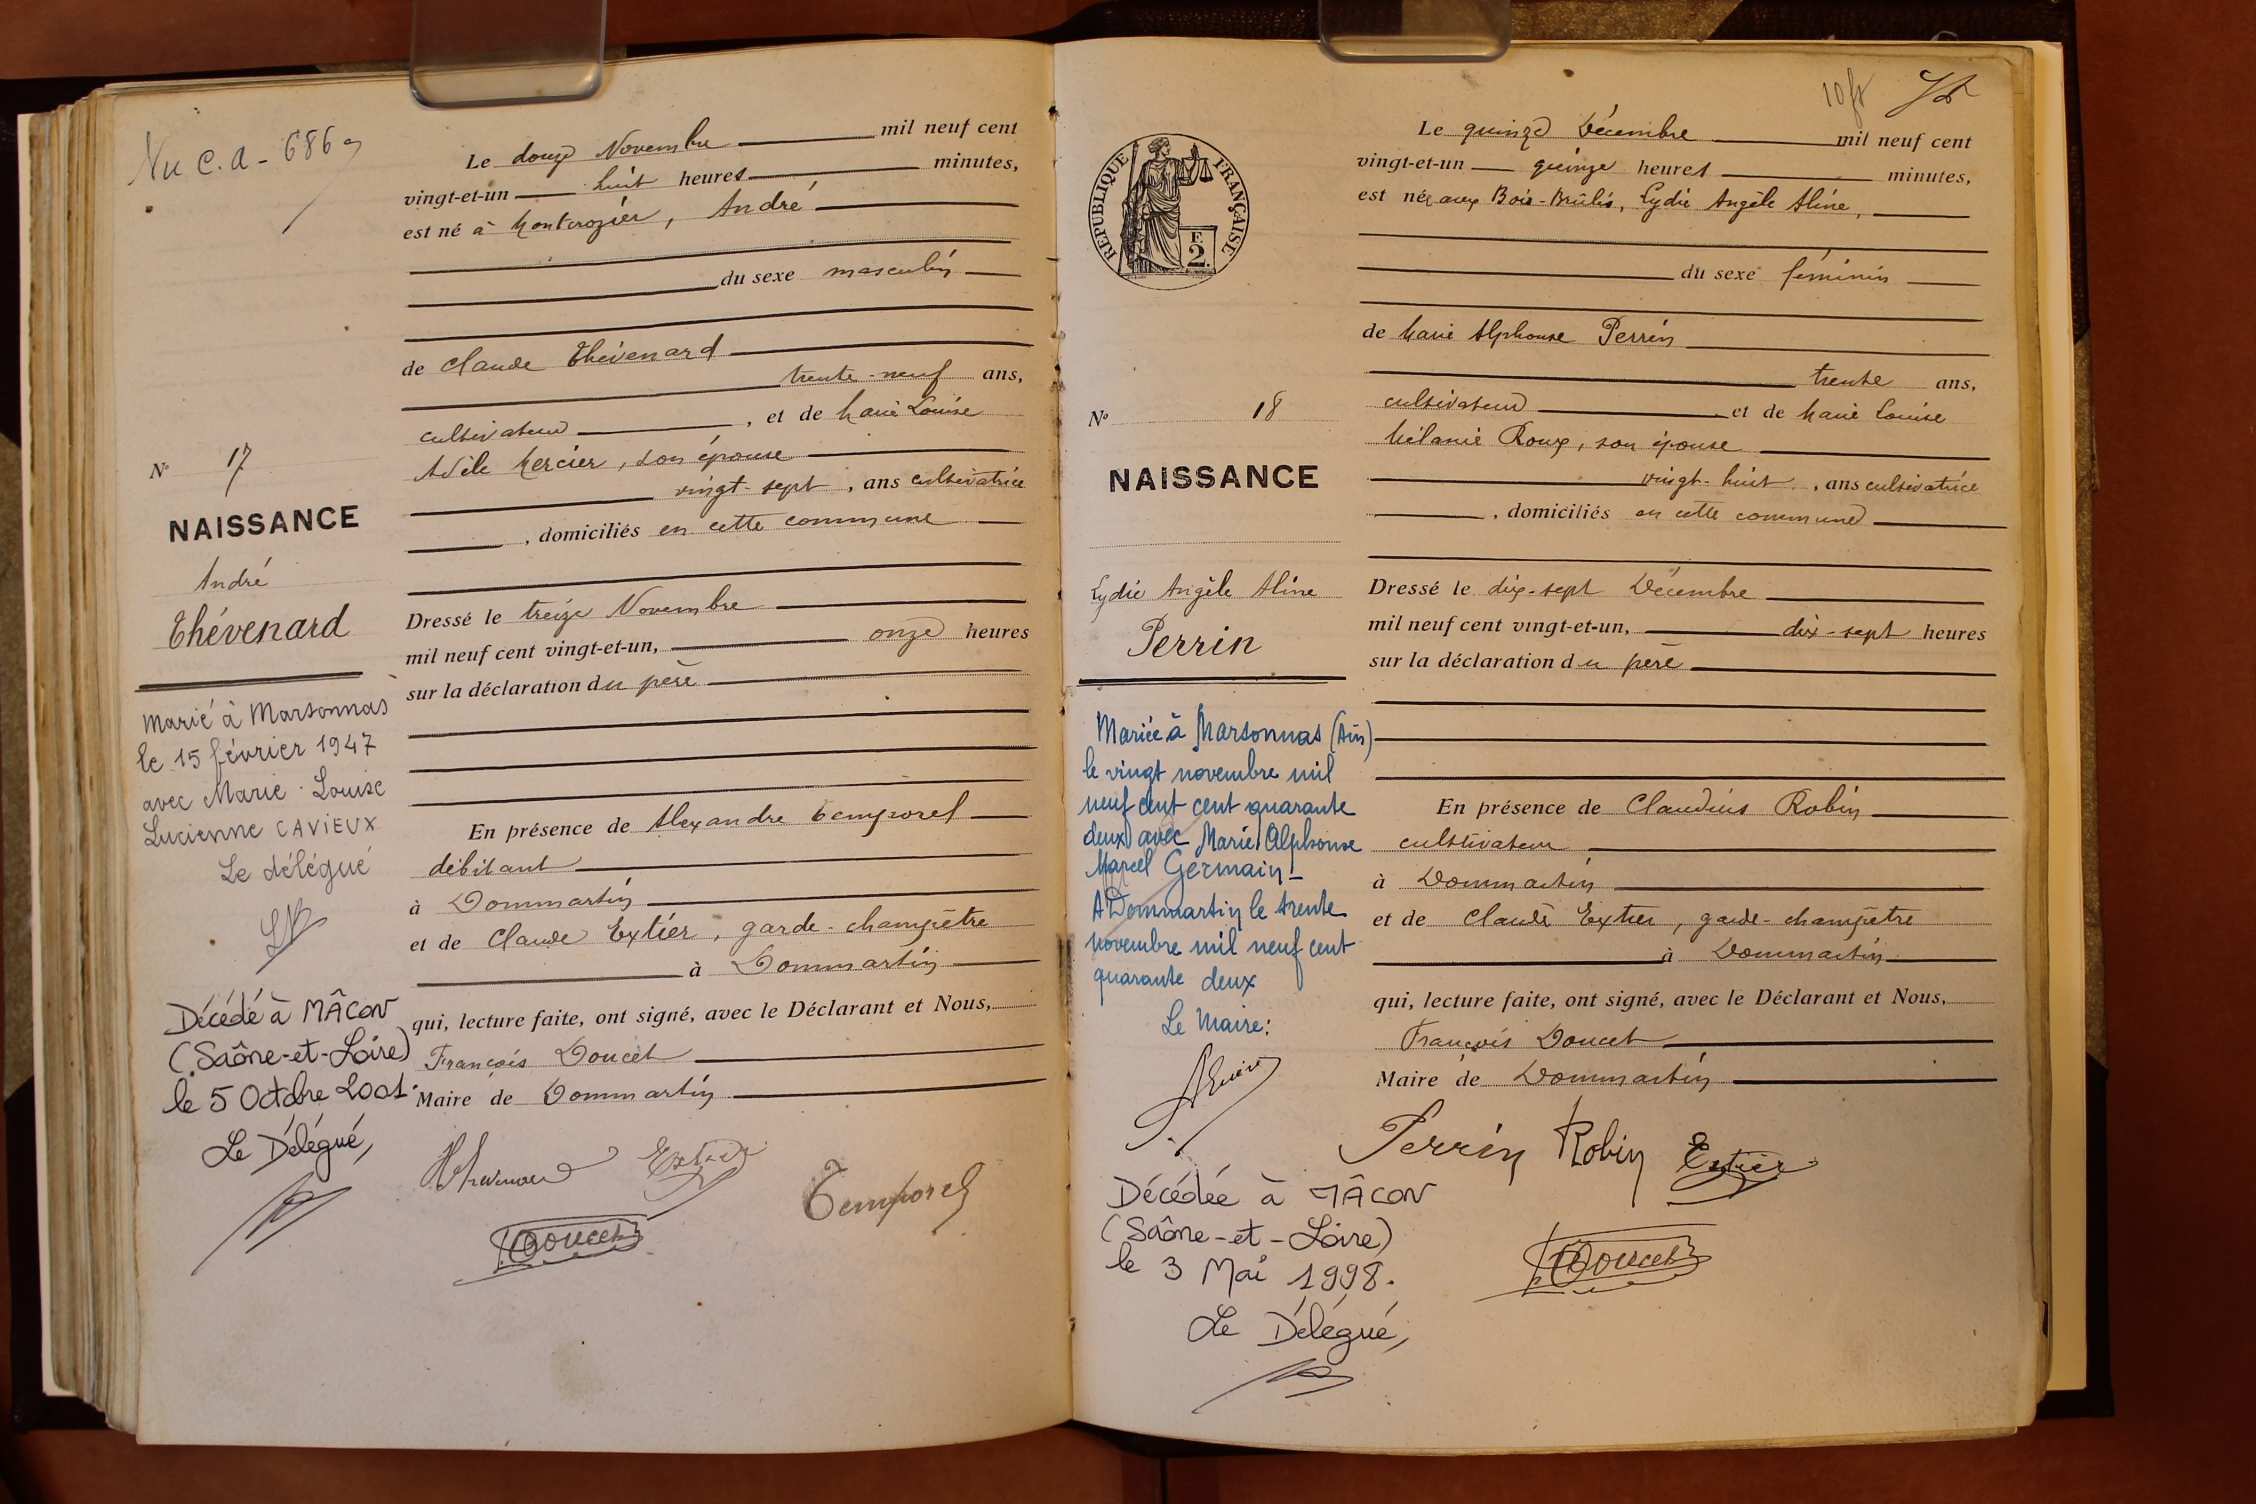 Vu C.A - 686
Le douze Novembre mil neuf cent
vingt-et-un huit heures minutes,
est né à Montcrozier, André
du sexe masculin
de Claude Thévenard
trente-neuf ans,
cultivateur, et de Marie Louise
Adèle Mercier, son épouse
vingt-sept, ans cultivatrice
, domiciliés en cette commune
Dressé le treize Novembre
mil neuf cent vingt-et-un, onze heures
sur la déclaration du père
En présence de Alexandre Temporel
débitant
à Dommartin
et de Claude Extier, garde-champêtre
à Dommartin
qui, lecture faite, ont signé, avec le Déclarant et Nous,
François Doucet
Maire de Dommartin
Thévenard Extier
Temporel
Doucet
N° 17
NAISSANCE
André
Thévenard
Marié à Marsonnas
le 15 février 1947
avec Marie-Louise
Lucienne CAVIEUX
Le délégué
Décédé à MÂCON
(Saône-et-Loire)
le 5 Octobre 2001.
Le Délégué,
10 fr
RÉPUBLIQUE FRANÇAISE
F
2.
Le quinze Décembre mil neuf cent
vingt-et-un quinze heures minutes,
est née aux Bois-Brûlés, Lydie Angèle Aline,
du sexe féminin
de Marie Alphonse Perrin
trente ans,
cultivateur et de Marie Louise
Mélanie Roux, son épouse
vingt-huit, ans cultivatrice
, domiciliés en cette commune
Dressé le dix-sept Décembre
mil neuf cent vingt-et-un, dix-sept heures
sur la déclaration du père
En présence de Claudius Robin
cultivateur
à Dommartin
et de Claude Extier, garde-champêtre
à Dommartin
qui, lecture faite, ont signé, avec le Déclarant et Nous,
François Doucet
Maire de Dommartin
Perrin Robin Extier
Doucet
N° 18
NAISSANCE
Lydie Angèle Aline
Perrin
Mariée à Marsonnas (Ain)
le vingt novembre mil
neuf cent cent quarante
deux avec Marie Alphonse
Marcel Germain_
A Dommartin le trente
novembre mil neuf cent
quarante deux
Le Maire:
Décédée à MÂCON
(Saône-et-Loire)
le 3 Mai 1998.
Le Délégué,